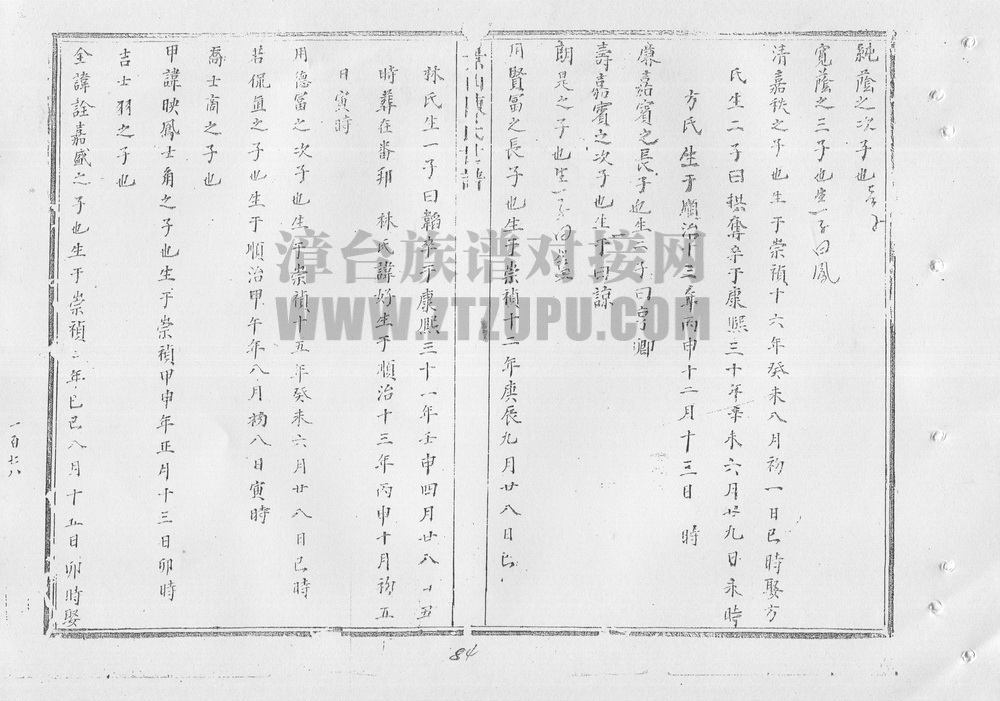 純蔭之次子也
寬蔭之三子也生一子曰鳳
清嘉秩之子也生于崇禎十六年癸未八月初一日巳時娶方
氏生二子曰拱奪卒于康熙三十年辛未六月廿九日未時
方氏生于順治十三年丙申十二月十三日 時
廉嘉賓之長子也生二子曰亨卿
壽嘉賓之次子也生一子曰諒
朗是之子也生一子曰
用賢冨之長子也生于崇禎十二年庚辰九月廿八日巳
陳氏世譜
林氏生一子曰韜卒于康熙三十一年壬申四月廿八日丑
時葬在番邦 林氏諱好生于順治十三年丙申十月初五
日寅時
用德冨之次子也生于崇禎十五年癸未六月廿八日巳時
若侃直之子也生于順治甲午年八月初八日寅時
喬士商之子也
甲諱映鳳士角之子也生于崇禎甲申年正月十三日卯時
吉士羽之子也
全諱詮嘉盛之子也生于崇禎二年己巳八月十五日卯時娶
一百七八
84
漳台族谱对接网
WWW.ZTZUPU.COM